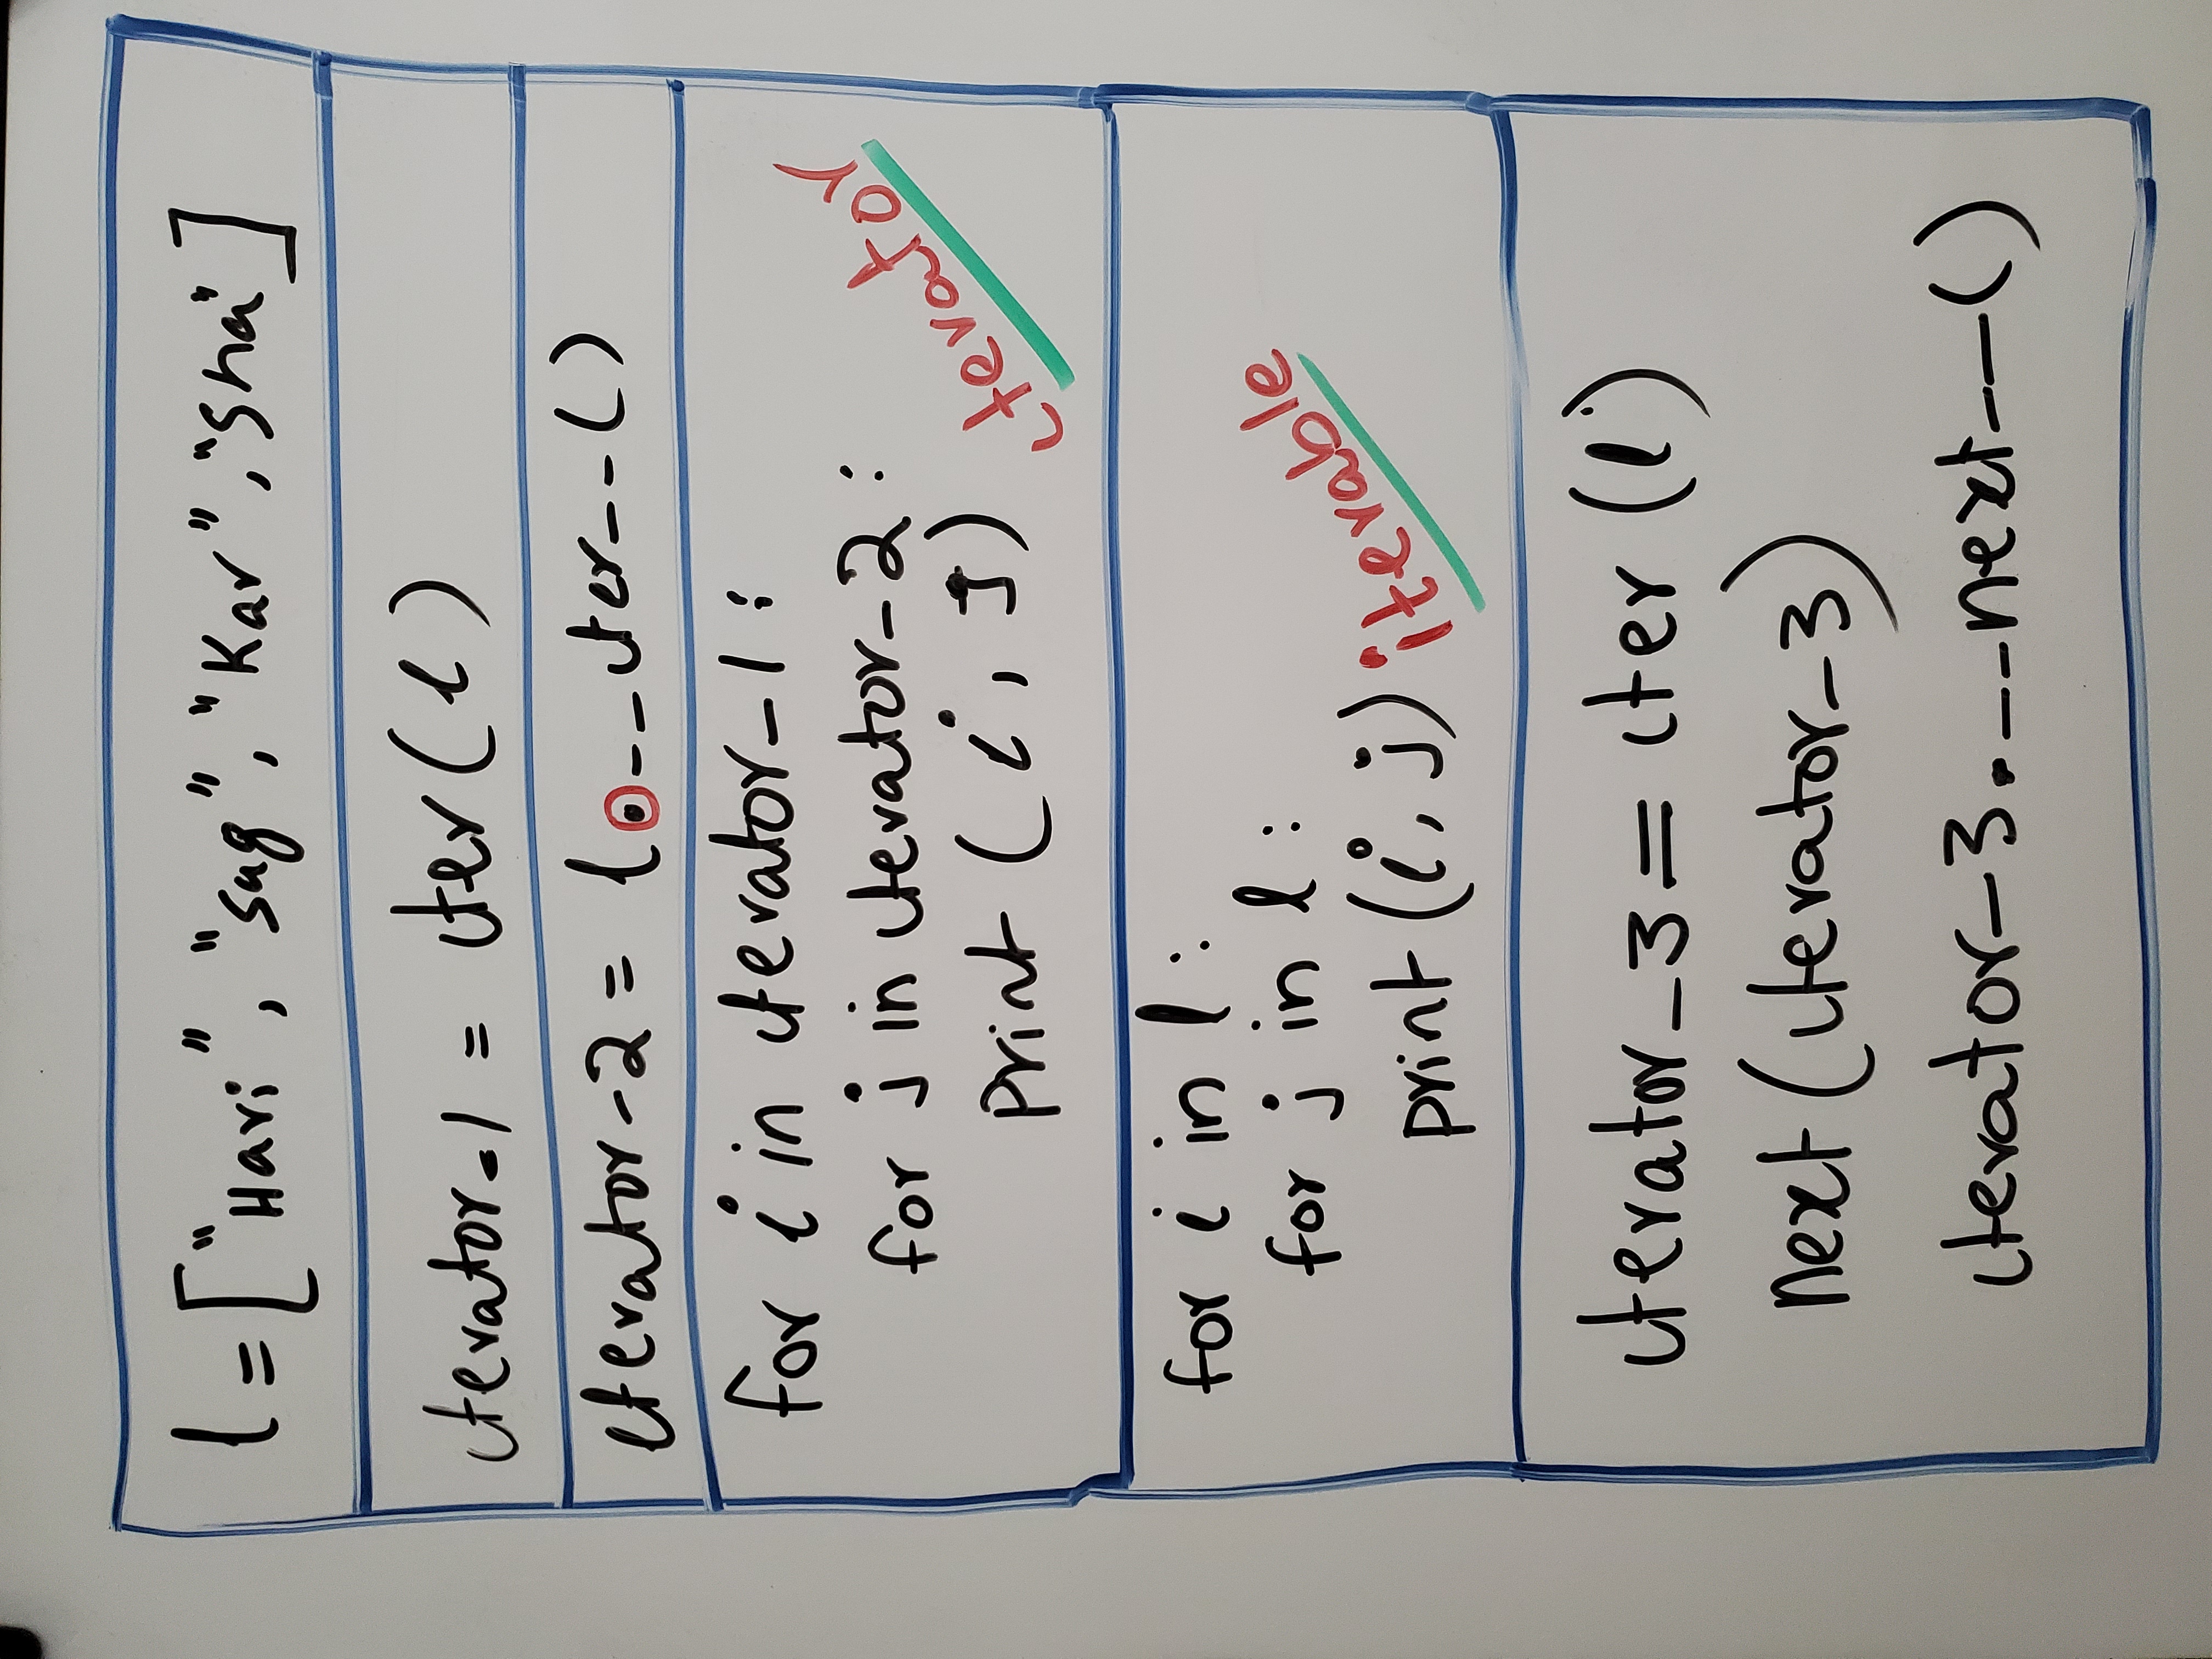 l = ["Hari", "Sug", "Kar", "Sha"]
iterator_1 = iter(l)
iterator_2 = l.__iter__()
for i in iterator_1:
for j in iterator_2:
print(i, j)
iterator
for i in l:
for j in l:
print(i, j)
iterable
iterator_3 = iter(l)
next(iterator_3)
iterator_3.__next__()